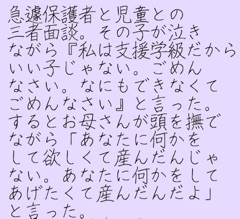 急遽保護者と児童との
三者面談。その子が泣き
ながら『私は支援学級だから
いい子じゃない。ごめん
なさい。なにもできなくて
ごめんなさい』と言った。
するとお母さんが頭を撫で
ながら「あなたに何かを
して欲しくて産んだんじゃ
ない。あなたに何かをして
あげたくて産んだんだよ」
と言った。